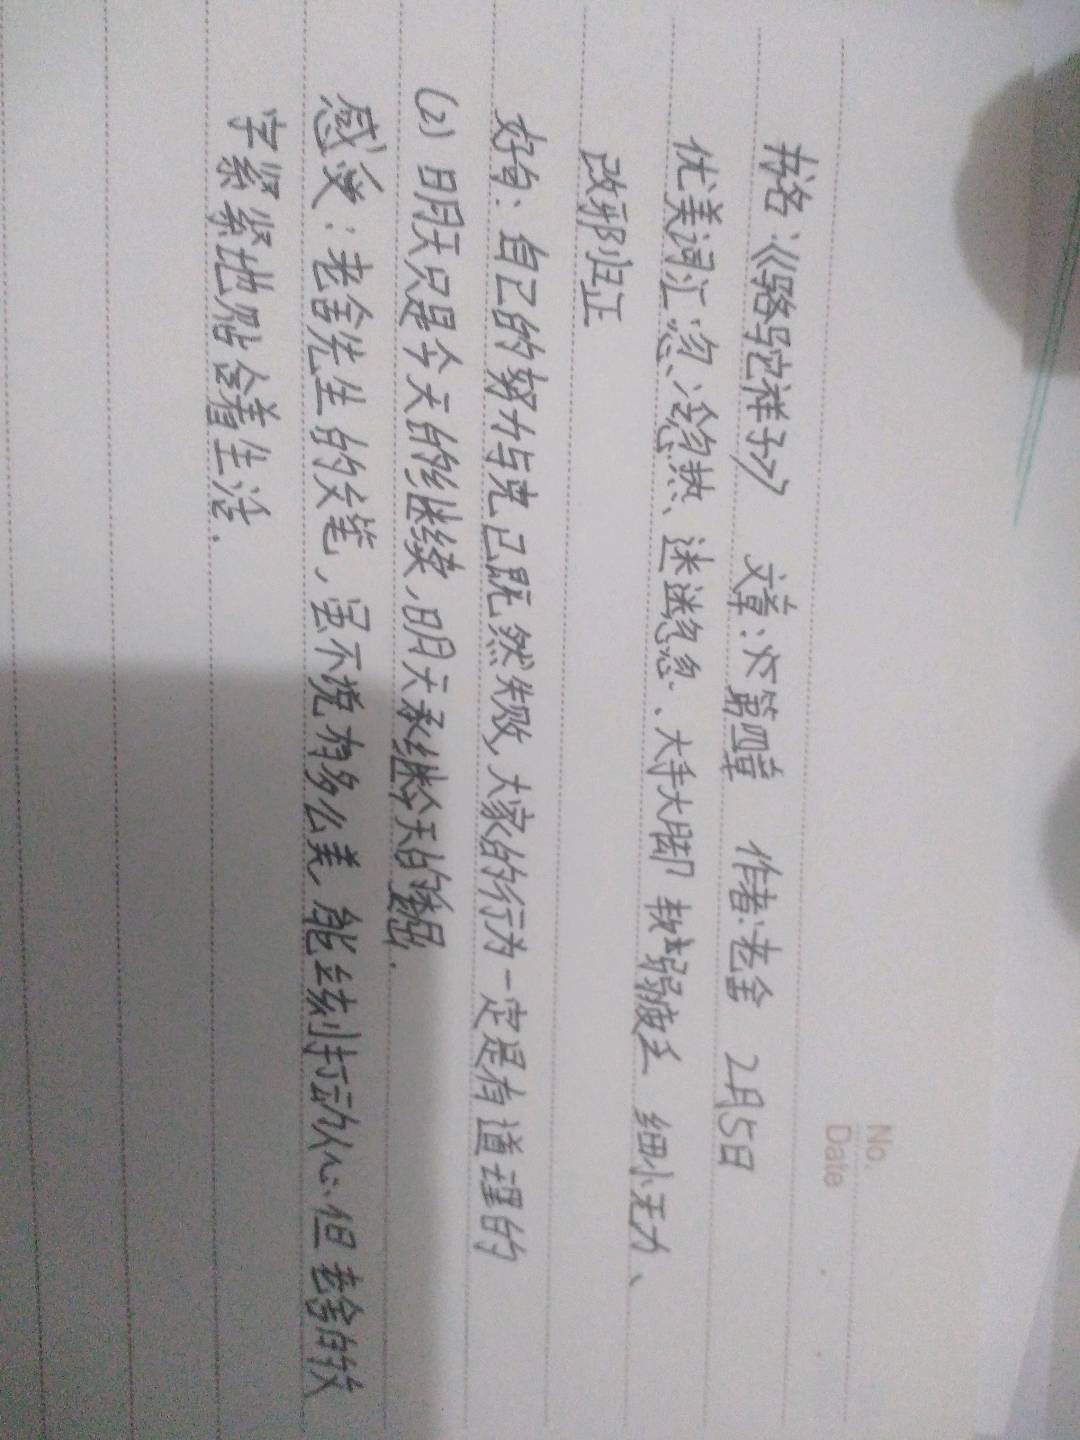 No.
Date
书名:《骆驼祥子》 文章:第四章 作者:老舍 2月5日
优美词汇:忽冷忽热、迷迷忽忽、大手大脚 软弱疲乏 细小无力、
改邪归正
好句:自己的努力与克己既然失败,大家的行为一定是有道理的
(2)明天只是今天的继续,明天承继今天的委屈.
感受:老舍先生的文笔,虽不说有多么美,能续打动人心.但老舍的文
字紧紧地贴含着生活.